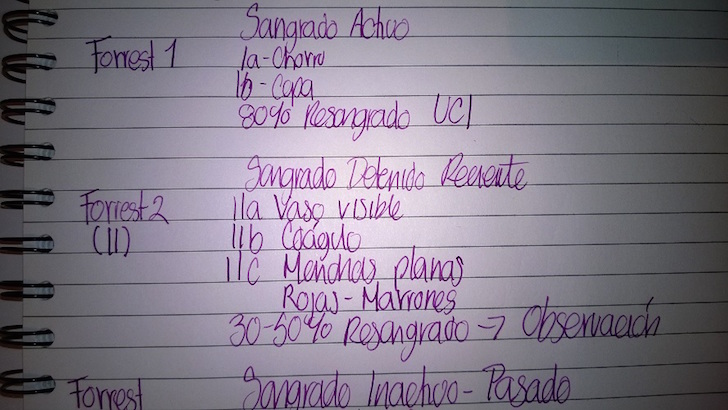 Sangrado Activo
Forrest 1 1a-Chorro
1b-Capa
80% Resangrado UCI
Sangrado Detenido Reciente
Forrest 2 IIa Vaso visible
(II) IIb Coágulo
IIC Manchas planas
Rojas-Marrones
30-50% Resangrado → Observación
Forrest Sangrado Inactivo - Pasado